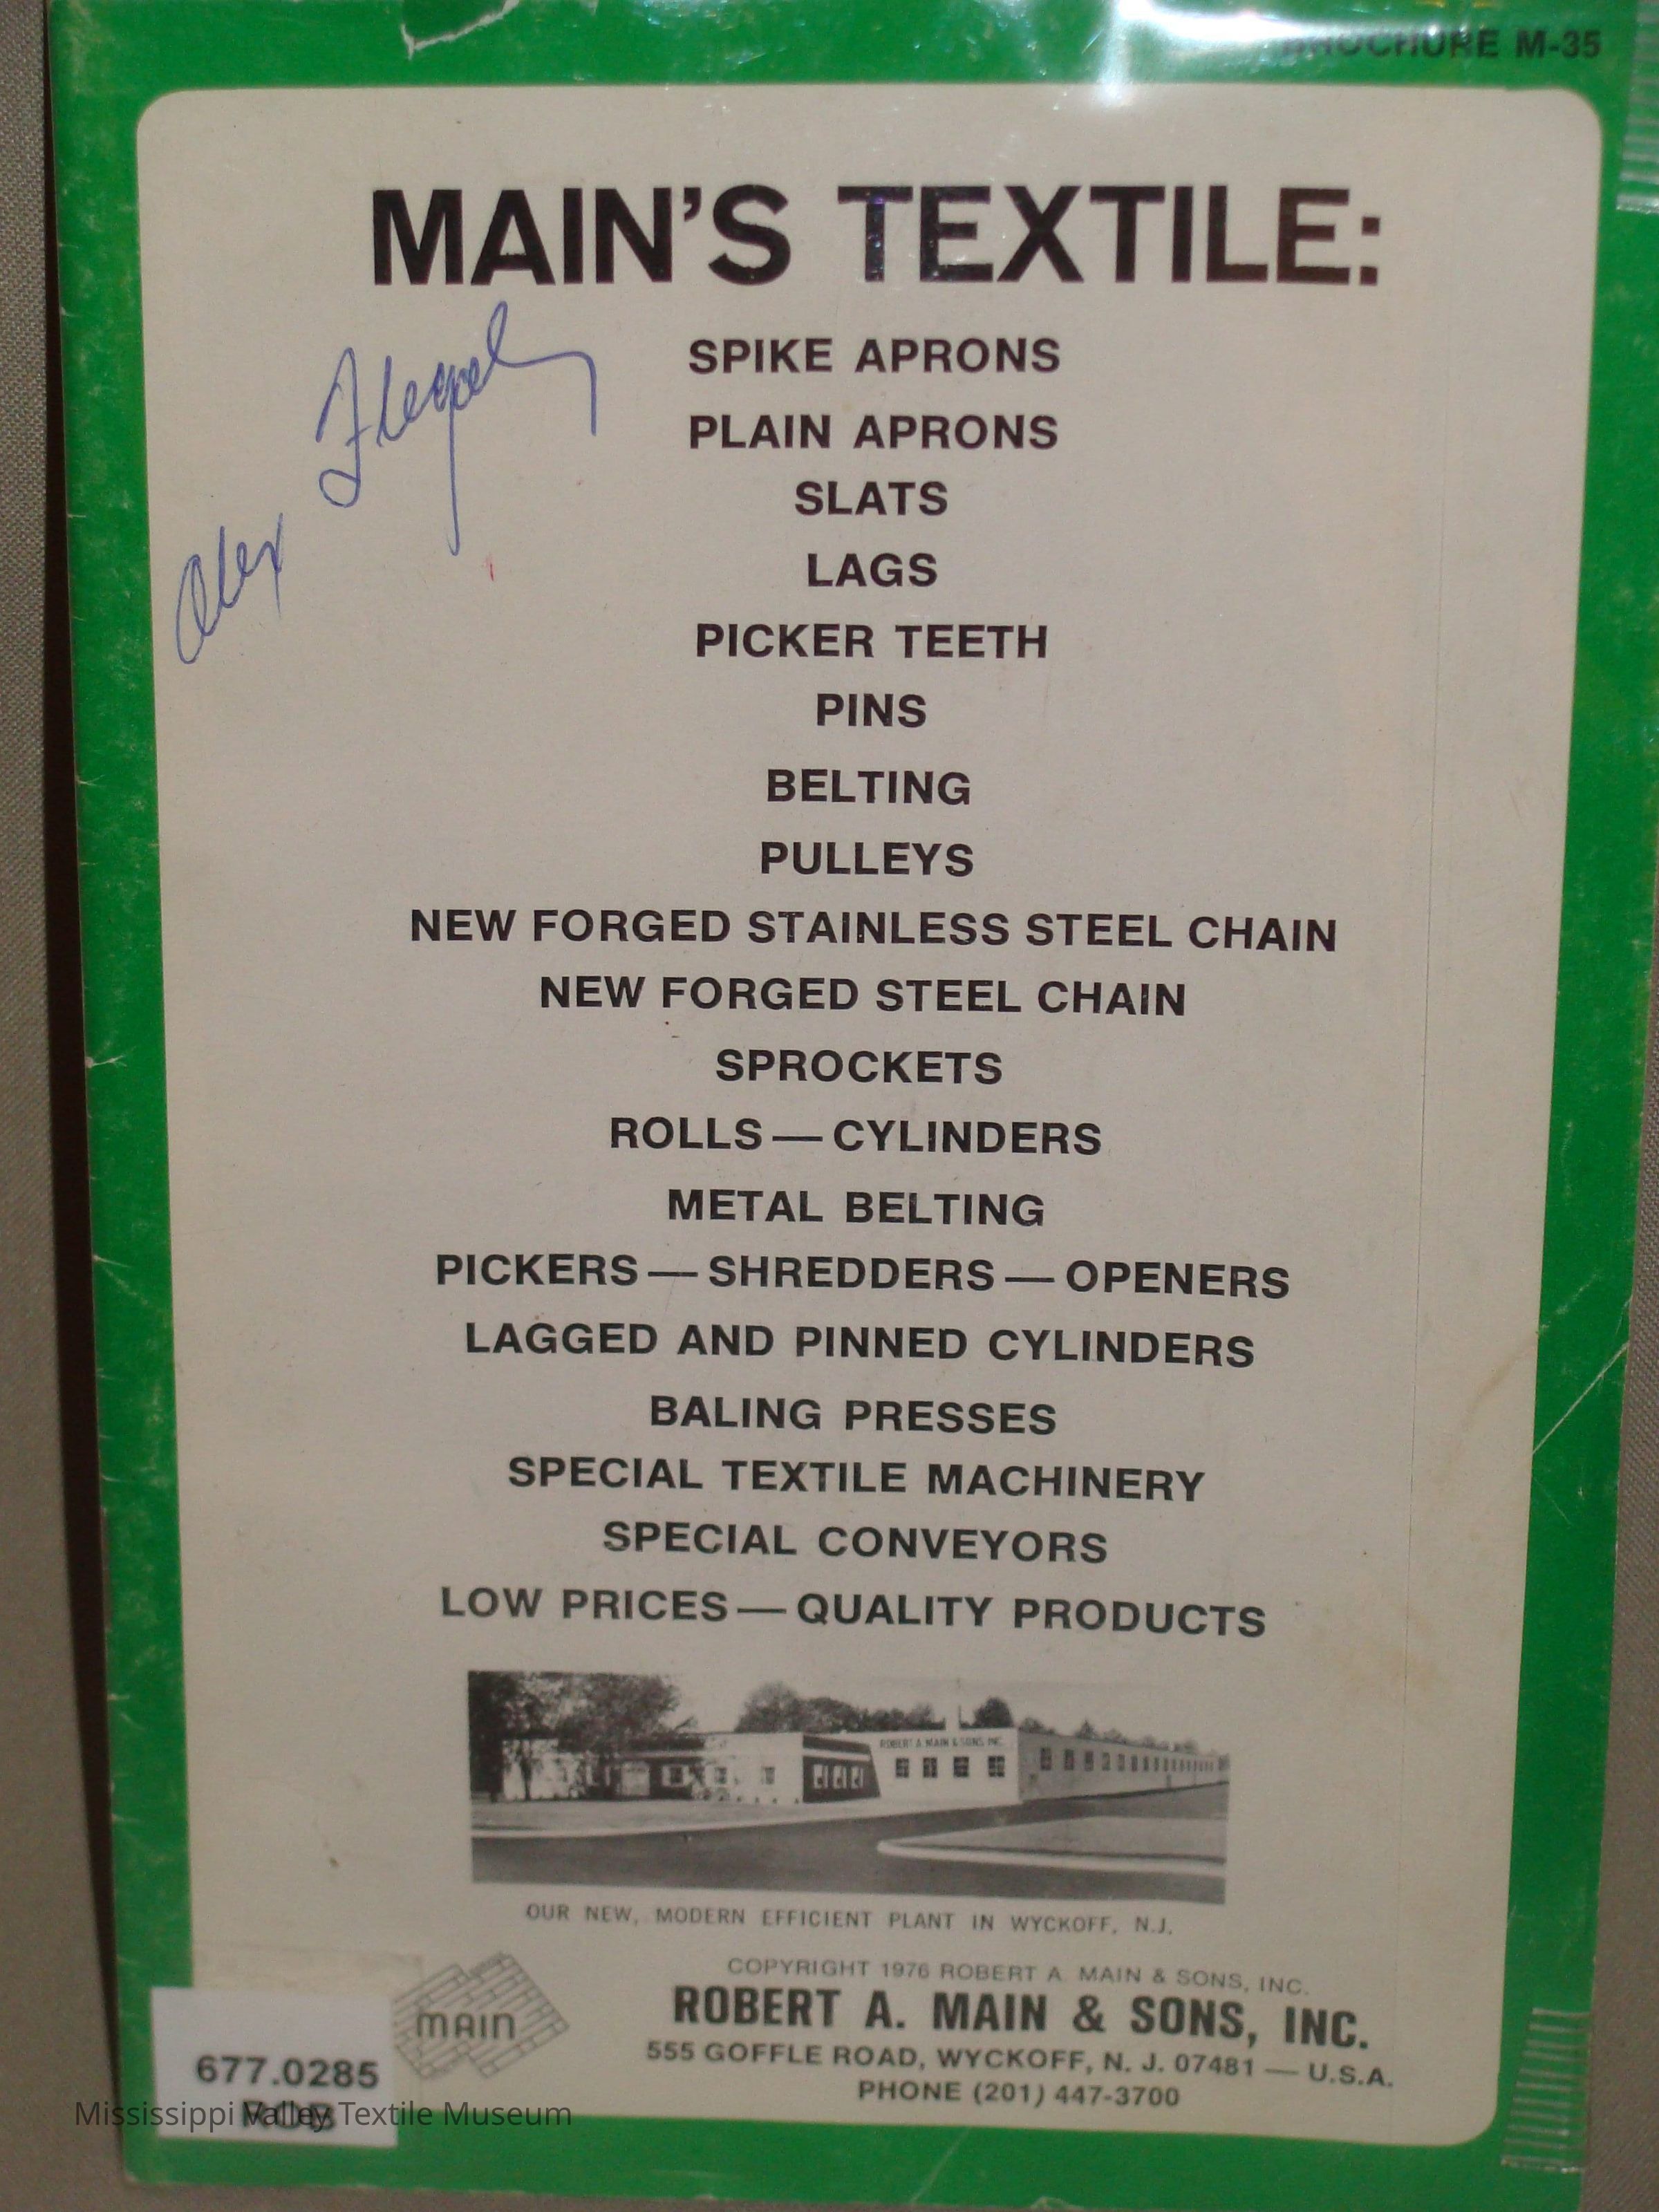 BROCHURE M-35
MAIN'S TEXTILE:
Alex
SPIKE APRONS
PLAIN APRONS
SLATS
LAGS
PICKER TEETH
PINS
BELTING
PULLEYS
NEW FORGED STAINLESS STEEL CHAIN
NEW FORGED STEEL CHAIN
SPROCKETS
ROLLS — CYLINDERS
METAL BELTING
PICKERS — SHREDDERS — OPENERS
LAGGED AND PINNED CYLINDERS
BALING PRESSES
SPECIAL TEXTILE MACHINERY
SPECIAL CONVEYORS
LOW PRICES — QUALITY PRODUCTS
ROBERT A. MAIN & SONS INC.
OUR NEW, MODERN EFFICIENT PLANT IN WYCKOFF, N.J.
COPYRIGHT 1976 ROBERT A. MAIN & SONS, INC.
MAIN
ROBERT A. MAIN & SONS, INC.
555 GOFFLE ROAD, WYCKOFF, N. J. 07481 — U.S.A.
PHONE (201) 447-3700
677.0285
ROB
Mississippi Valley Textile Museum